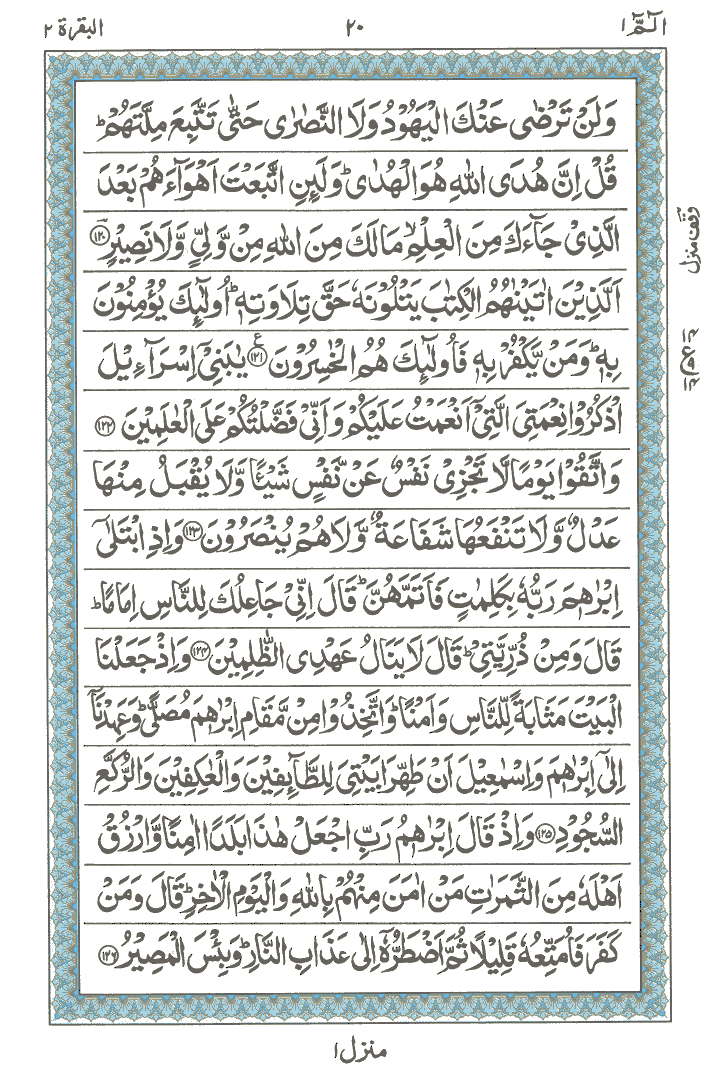 الٓمّٓ ١
٢٠
البقرة ٢
وَلَنْ تَرْضٰى عَنْكَ الْيَهُوْدُ وَلَا النَّصٰرٰى حَتّٰى تَتَّبِعَ مِلَّتَهُمْ ؕ
قُلْ اِنَّ هُدَى اللّٰهِ هُوَ الْهُدٰى ؕ وَلَئِنِ اتَّبَعْتَ اَهْوَآءَهُمْ بَعْدَ
الَّذِيْ جَآءَكَ مِنَ الْعِلْمِ ۙ مَا لَكَ مِنَ اللّٰهِ مِنْ وَّلِيٍّ وَّلَا نَصِيْرٍ ﴿١٢٠﴾
اَلَّذِيْنَ اٰتَيْنٰهُمُ الْكِتٰبَ يَتْلُوْنَهٗ حَقَّ تِلَاوَتِهٖ ؕ اُولٰٓئِكَ يُؤْمِنُوْنَ
بِهٖ ؕ وَمَنْ يَّكْفُرْ بِهٖ فَاُولٰٓئِكَ هُمُ الْخٰسِرُوْنَ ﴿١٢١﴾ ع يٰبَنِيْٓ اِسْرَآءِيْلَ
اذْكُرُوْا نِعْمَتِيَ الَّتِيْٓ اَنْعَمْتُ عَلَيْكُمْ وَاَنِّيْ فَضَّلْتُكُمْ عَلَى الْعٰلَمِيْنَ ﴿١٢٢﴾
وَاتَّقُوْا يَوْمًا لَّا تَجْزِيْ نَفْسٌ عَنْ نَّفْسٍ شَيْئًا وَّلَا يُقْبَلُ مِنْهَا
عَدْلٌ وَّلَا تَنْفَعُهَا شَفَاعَةٌ وَّلَا هُمْ يُنْصَرُوْنَ ﴿١٢٣﴾ وَاِذِ ابْتَلٰٓى
اِبْرٰهٖمَ رَبُّهٗ بِكَلِمٰتٍ فَاَتَمَّهُنَّ ؕ قَالَ اِنِّيْ جَاعِلُكَ لِلنَّاسِ اِمَامًا ؕ
قَالَ وَمِنْ ذُرِّيَّتِيْ ؕ قَالَ لَا يَنَالُ عَهْدِي الظّٰلِمِيْنَ ﴿١٢٤﴾ وَاِذْ جَعَلْنَا
الْبَيْتَ مَثَابَةً لِّلنَّاسِ وَاَمْنًا ؕ وَاتَّخِذُوْا مِنْ مَّقَامِ اِبْرٰهٖمَ مُصَلًّى ؕ وَعَهِدْنَآ
اِلٰٓى اِبْرٰهٖمَ وَاِسْمٰعِيْلَ اَنْ طَهِّرَا بَيْتِيَ لِلطَّآئِفِيْنَ وَالْعٰكِفِيْنَ وَالرُّكَّعِ
السُّجُوْدِ ﴿١٢٥﴾ وَاِذْ قَالَ اِبْرٰهٖمُ رَبِّ اجْعَلْ هٰذَا بَلَدًا اٰمِنًا وَّارْزُقْ
اَهْلَهٗ مِنَ الثَّمَرٰتِ مَنْ اٰمَنَ مِنْهُمْ بِاللّٰهِ وَالْيَوْمِ الْاٰخِرِ ؕ قَالَ وَمَنْ
كَفَرَ فَاُمَتِّعُهٗ قَلِيْلًا ثُمَّ اَضْطَرُّهٗٓ اِلٰى عَذَابِ النَّارِ ؕ وَبِئْسَ الْمَصِيْرُ ﴿١٢٦﴾
وقف منزل
منزل ١